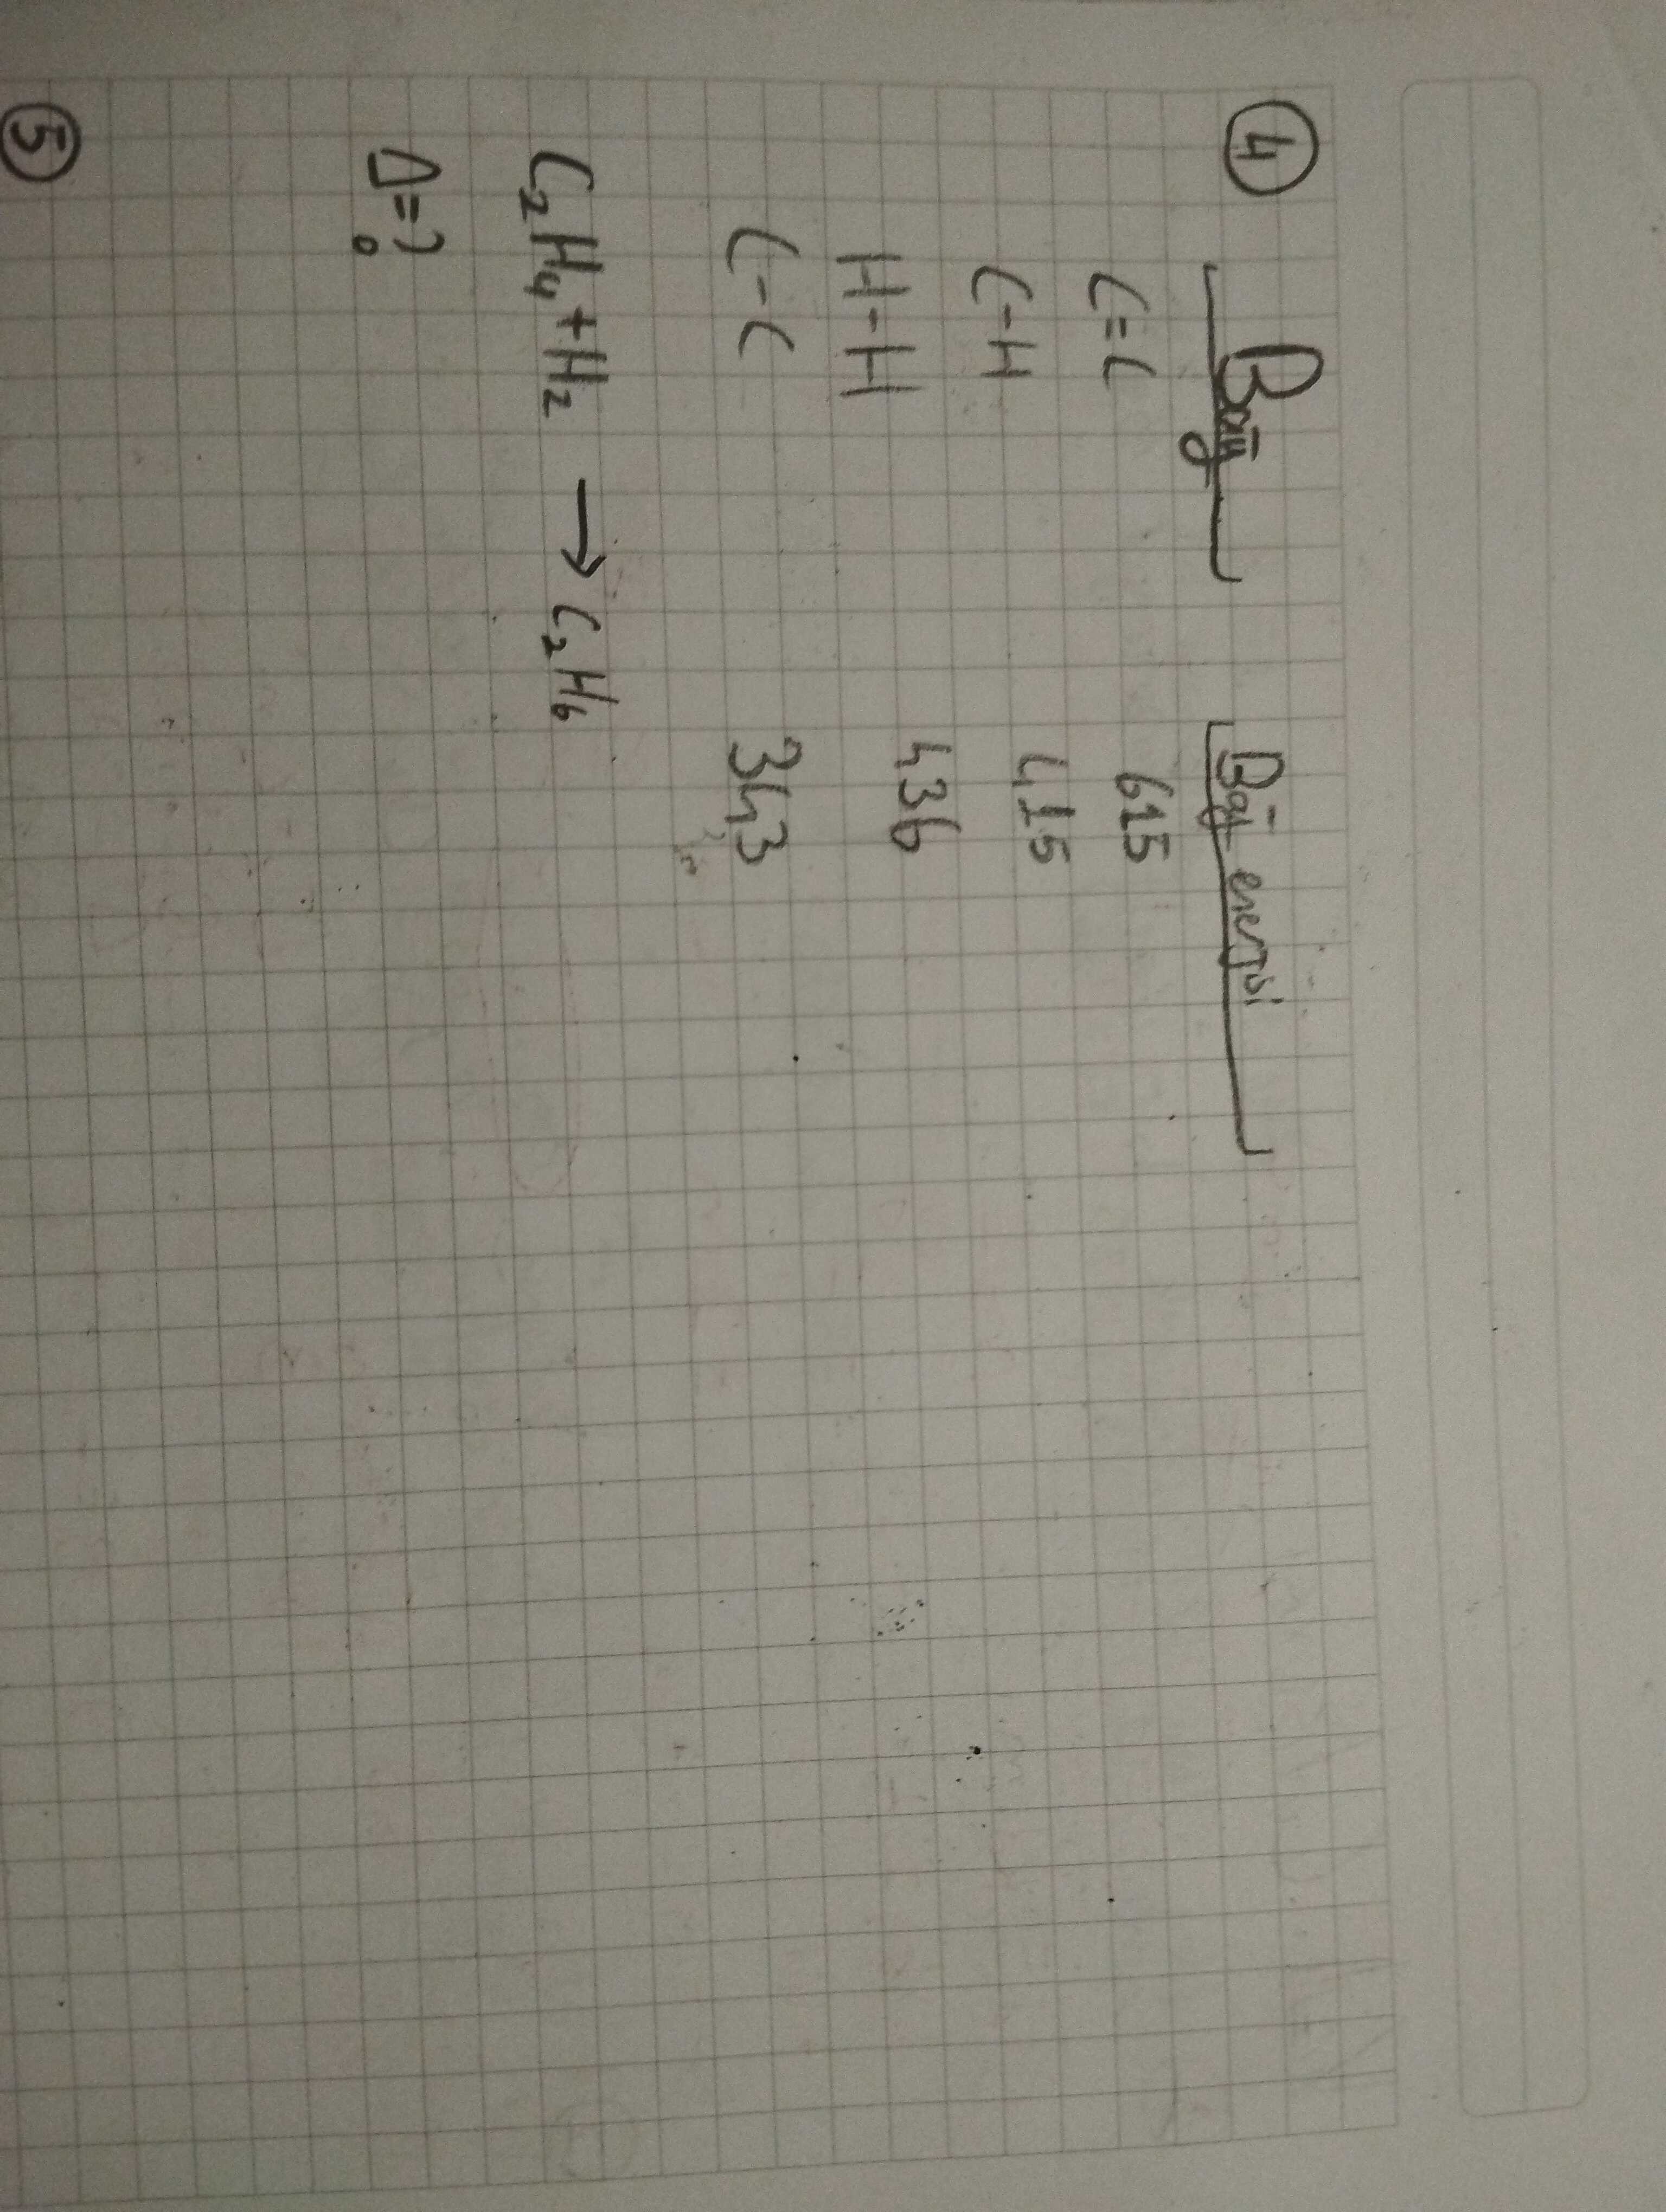 ④ Bağ Bağ enerjisi
C=C 615
C-H 415
H-H 436
C-C 343
C₂H₄ + H₂ → C₂H₆
Δ=?
⑤